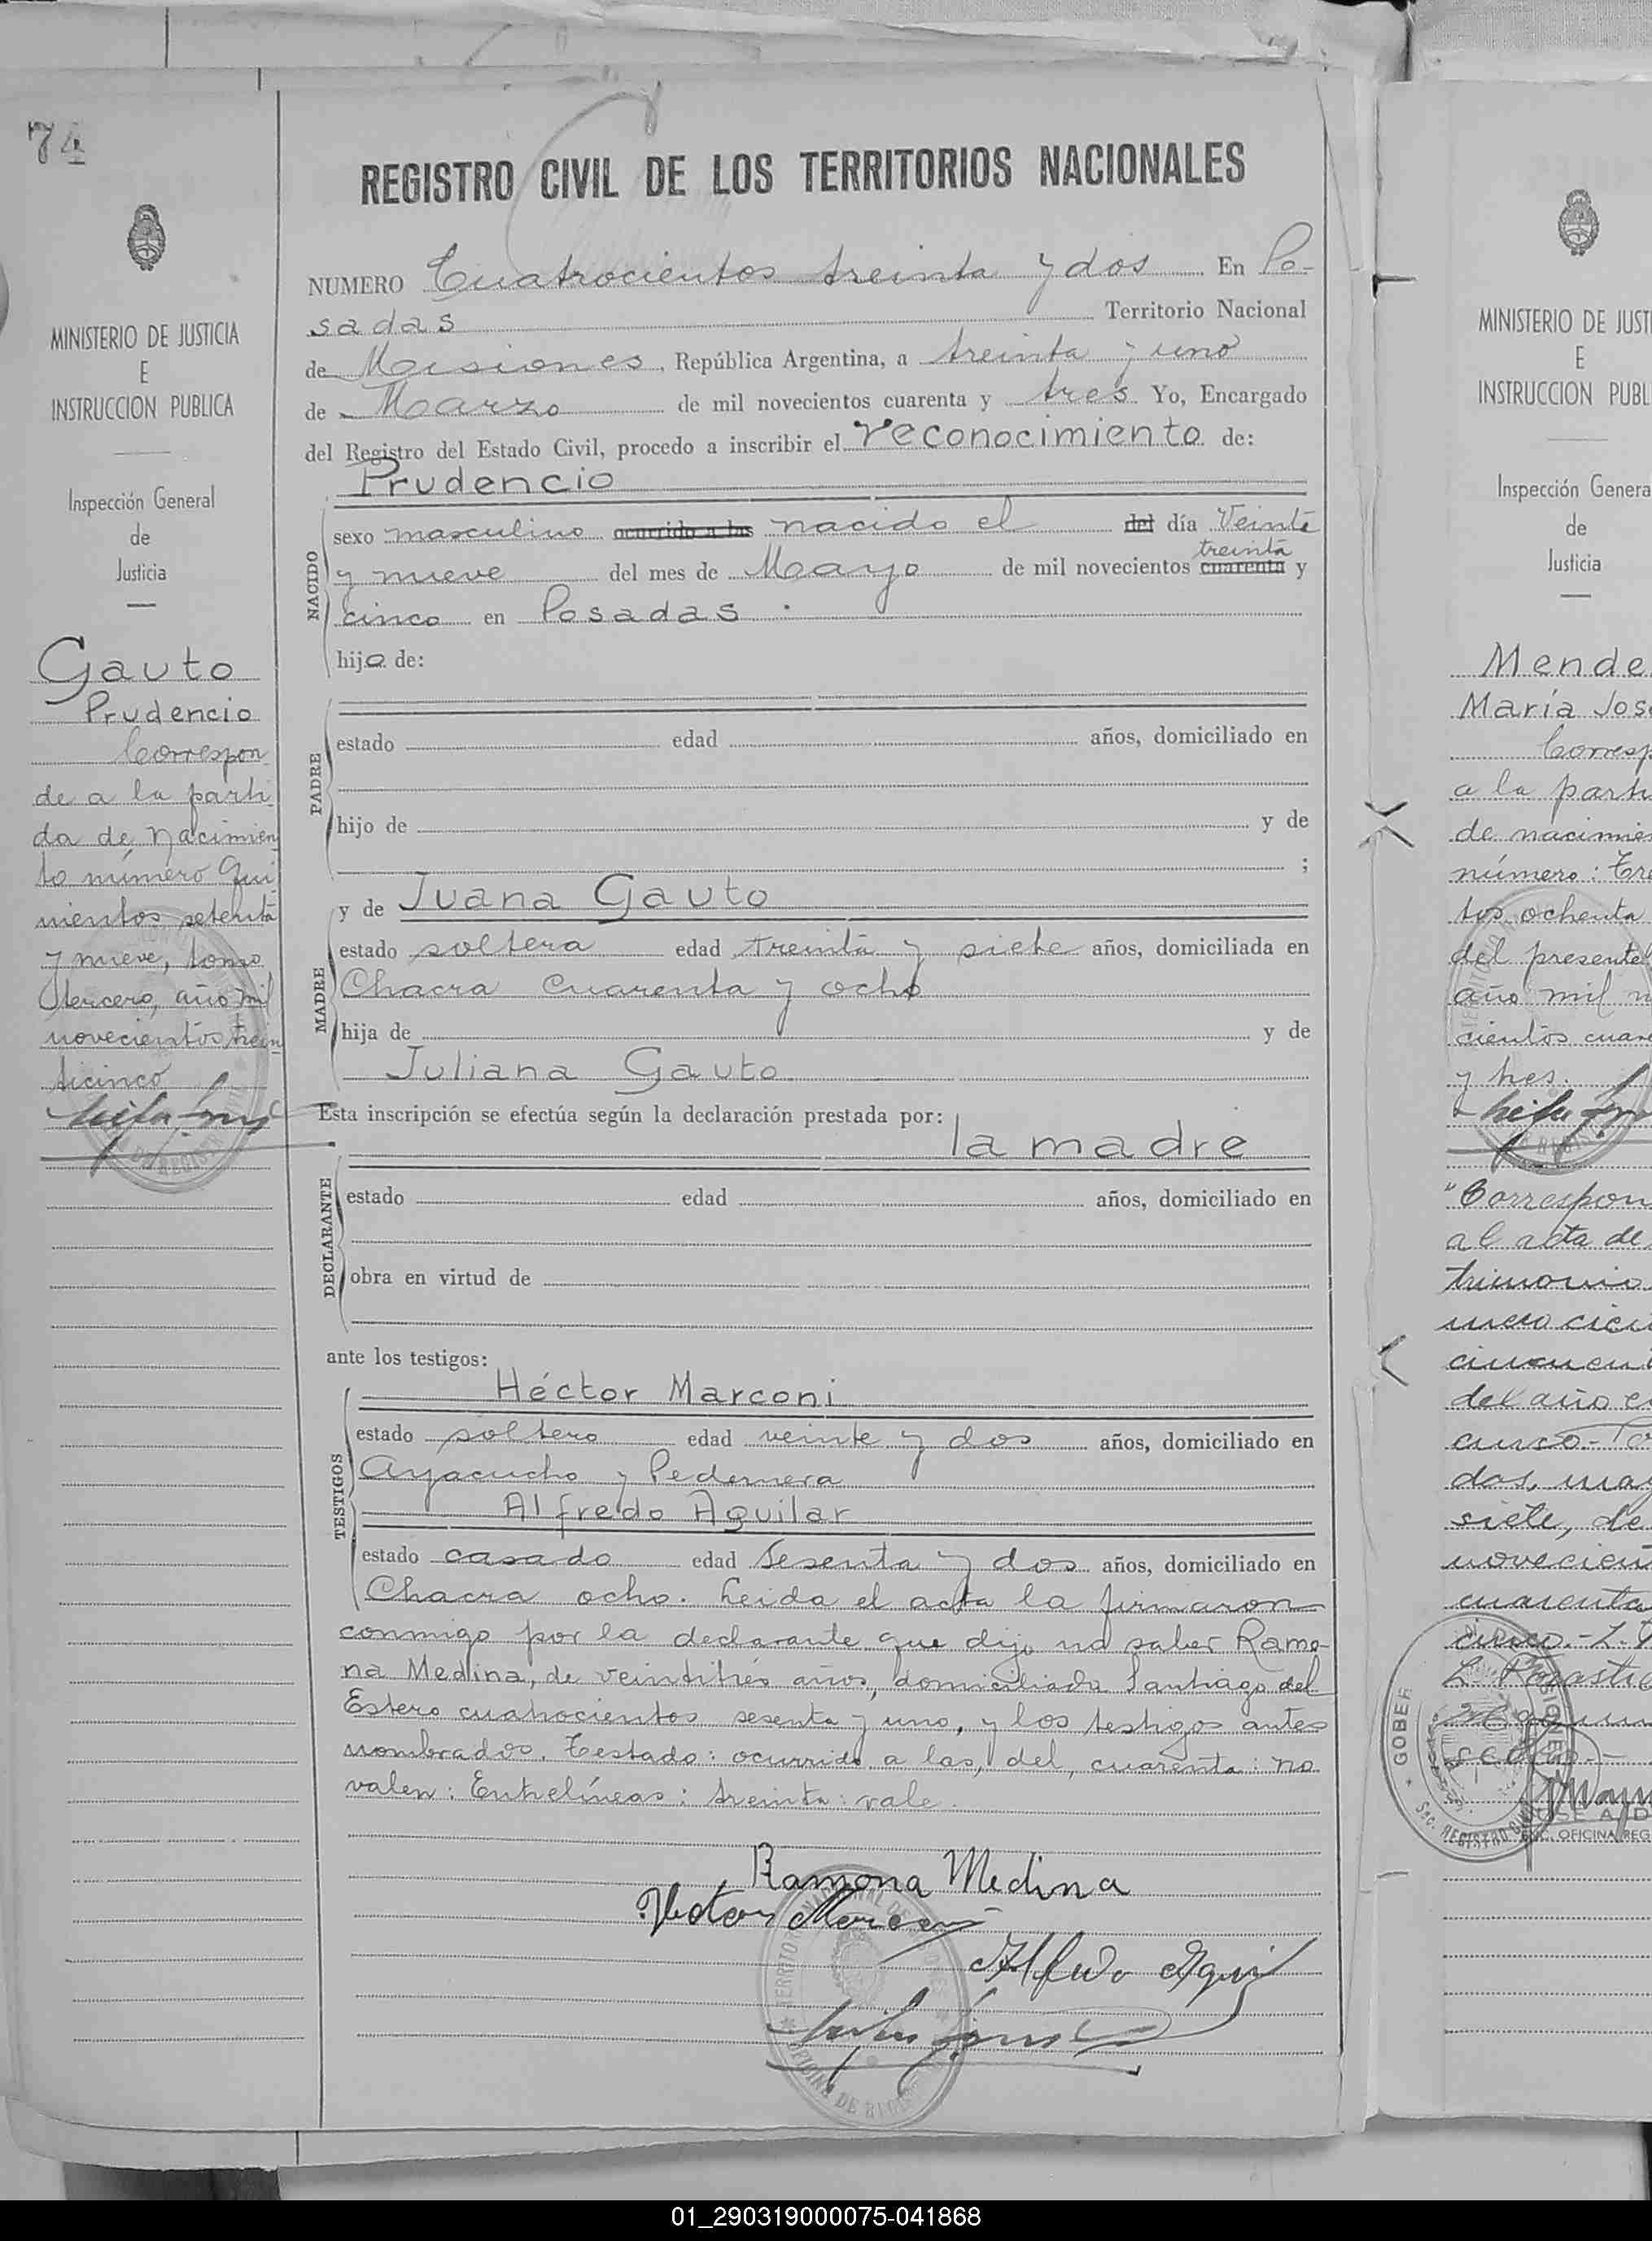 74
MINISTERIO DE JUSTICIA
E
INSTRUCCION PUBLICA
Inspección General
de
Justicia
Gauto
Prudencio
Correspon
de a la parti
da de Nacimien
to número Qui
nientos setenta
y nueve, tomo
tercero, año mil
novecientos trein
ticinco
REGISTRO CIVIL DE LOS TERRITORIOS NACIONALES
NUMERO Cuatrocientos treinta y dos En Po-
sadas Territorio Nacional
de Misiones, República Argentina, a treinta y uno
de Marzo de mil novecientos cuarenta y tres Yo, Encargado
del Registro del Estado Civil, procedo a inscribir el reconocimiento de:
Prudencio
NACIDO
sexo masculino ocurrido a las nacido el del día Veinte
treinta
y nueve del mes de Mayo de mil novecientos cuarenta y
cinco en Posadas.
hijo de:
PADRE
estado edad años, domiciliado en
hijo de y de
;
MADRE
y de Juana Gauto
estado soltera edad treinta y siete años, domiciliada en
Chacra Cuarenta y ocho
hija de y de
Juliana Gauto
Esta inscripción se efectúa según la declaración prestada por:
la madre
DECLARANTE
estado edad años, domiciliado en
obra en virtud de
ante los testigos:
TESTIGOS
Héctor Marconi
estado soltero edad veinte y dos años, domiciliado en
Ayacucho y Pedernera
Alfredo Aguilar
estado casado edad Sesenta y dos años, domiciliado en
Chacra ocho. Leida el acta la firmaron
conmigo por la declarante que dijo no saber Ramo-
na Medina, de veintitrés años, domiciliada Santiago del
Estero cuatrocientos sesenta y uno, y los testigos antes
nombrados. Testado: ocurrido a las, del, cuarenta: no
valen: Entrelíneas: treinta: vale.
Ramona Medina
Hector Marconi
Alfredo Aguil
MINISTERIO DE JUSTI
E
INSTRUCCION PUBL
Inspección Genera
de
Justicia
Mende
María Jos
Corresp
a la parti
de nacimien
número: Tre
tos ochenta
del presente
año mil n
cientos cuare
y tres.
"Correspon
al acta de
trimonio
mero cien
cincuen
del año e
curso-To
dos, may
siete, de
novecien
cuarenta
cinco.-
GOBER
SIONES
Sec. REGISTRO
OSE A. D
OFICINA REG
01_290319000075-041868